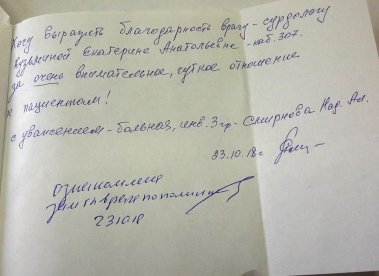 Хочу выразить благодарность врачу-сурдологу
Кузьминой Екатерине Анатольевне - каб. 307.
за очень внимательное, чуткое отношение
к пациентам!
с уважением - больная, инв. 3 гр - Смирнова Над. Ал.
23.10.18 г
ознакомлена
231018